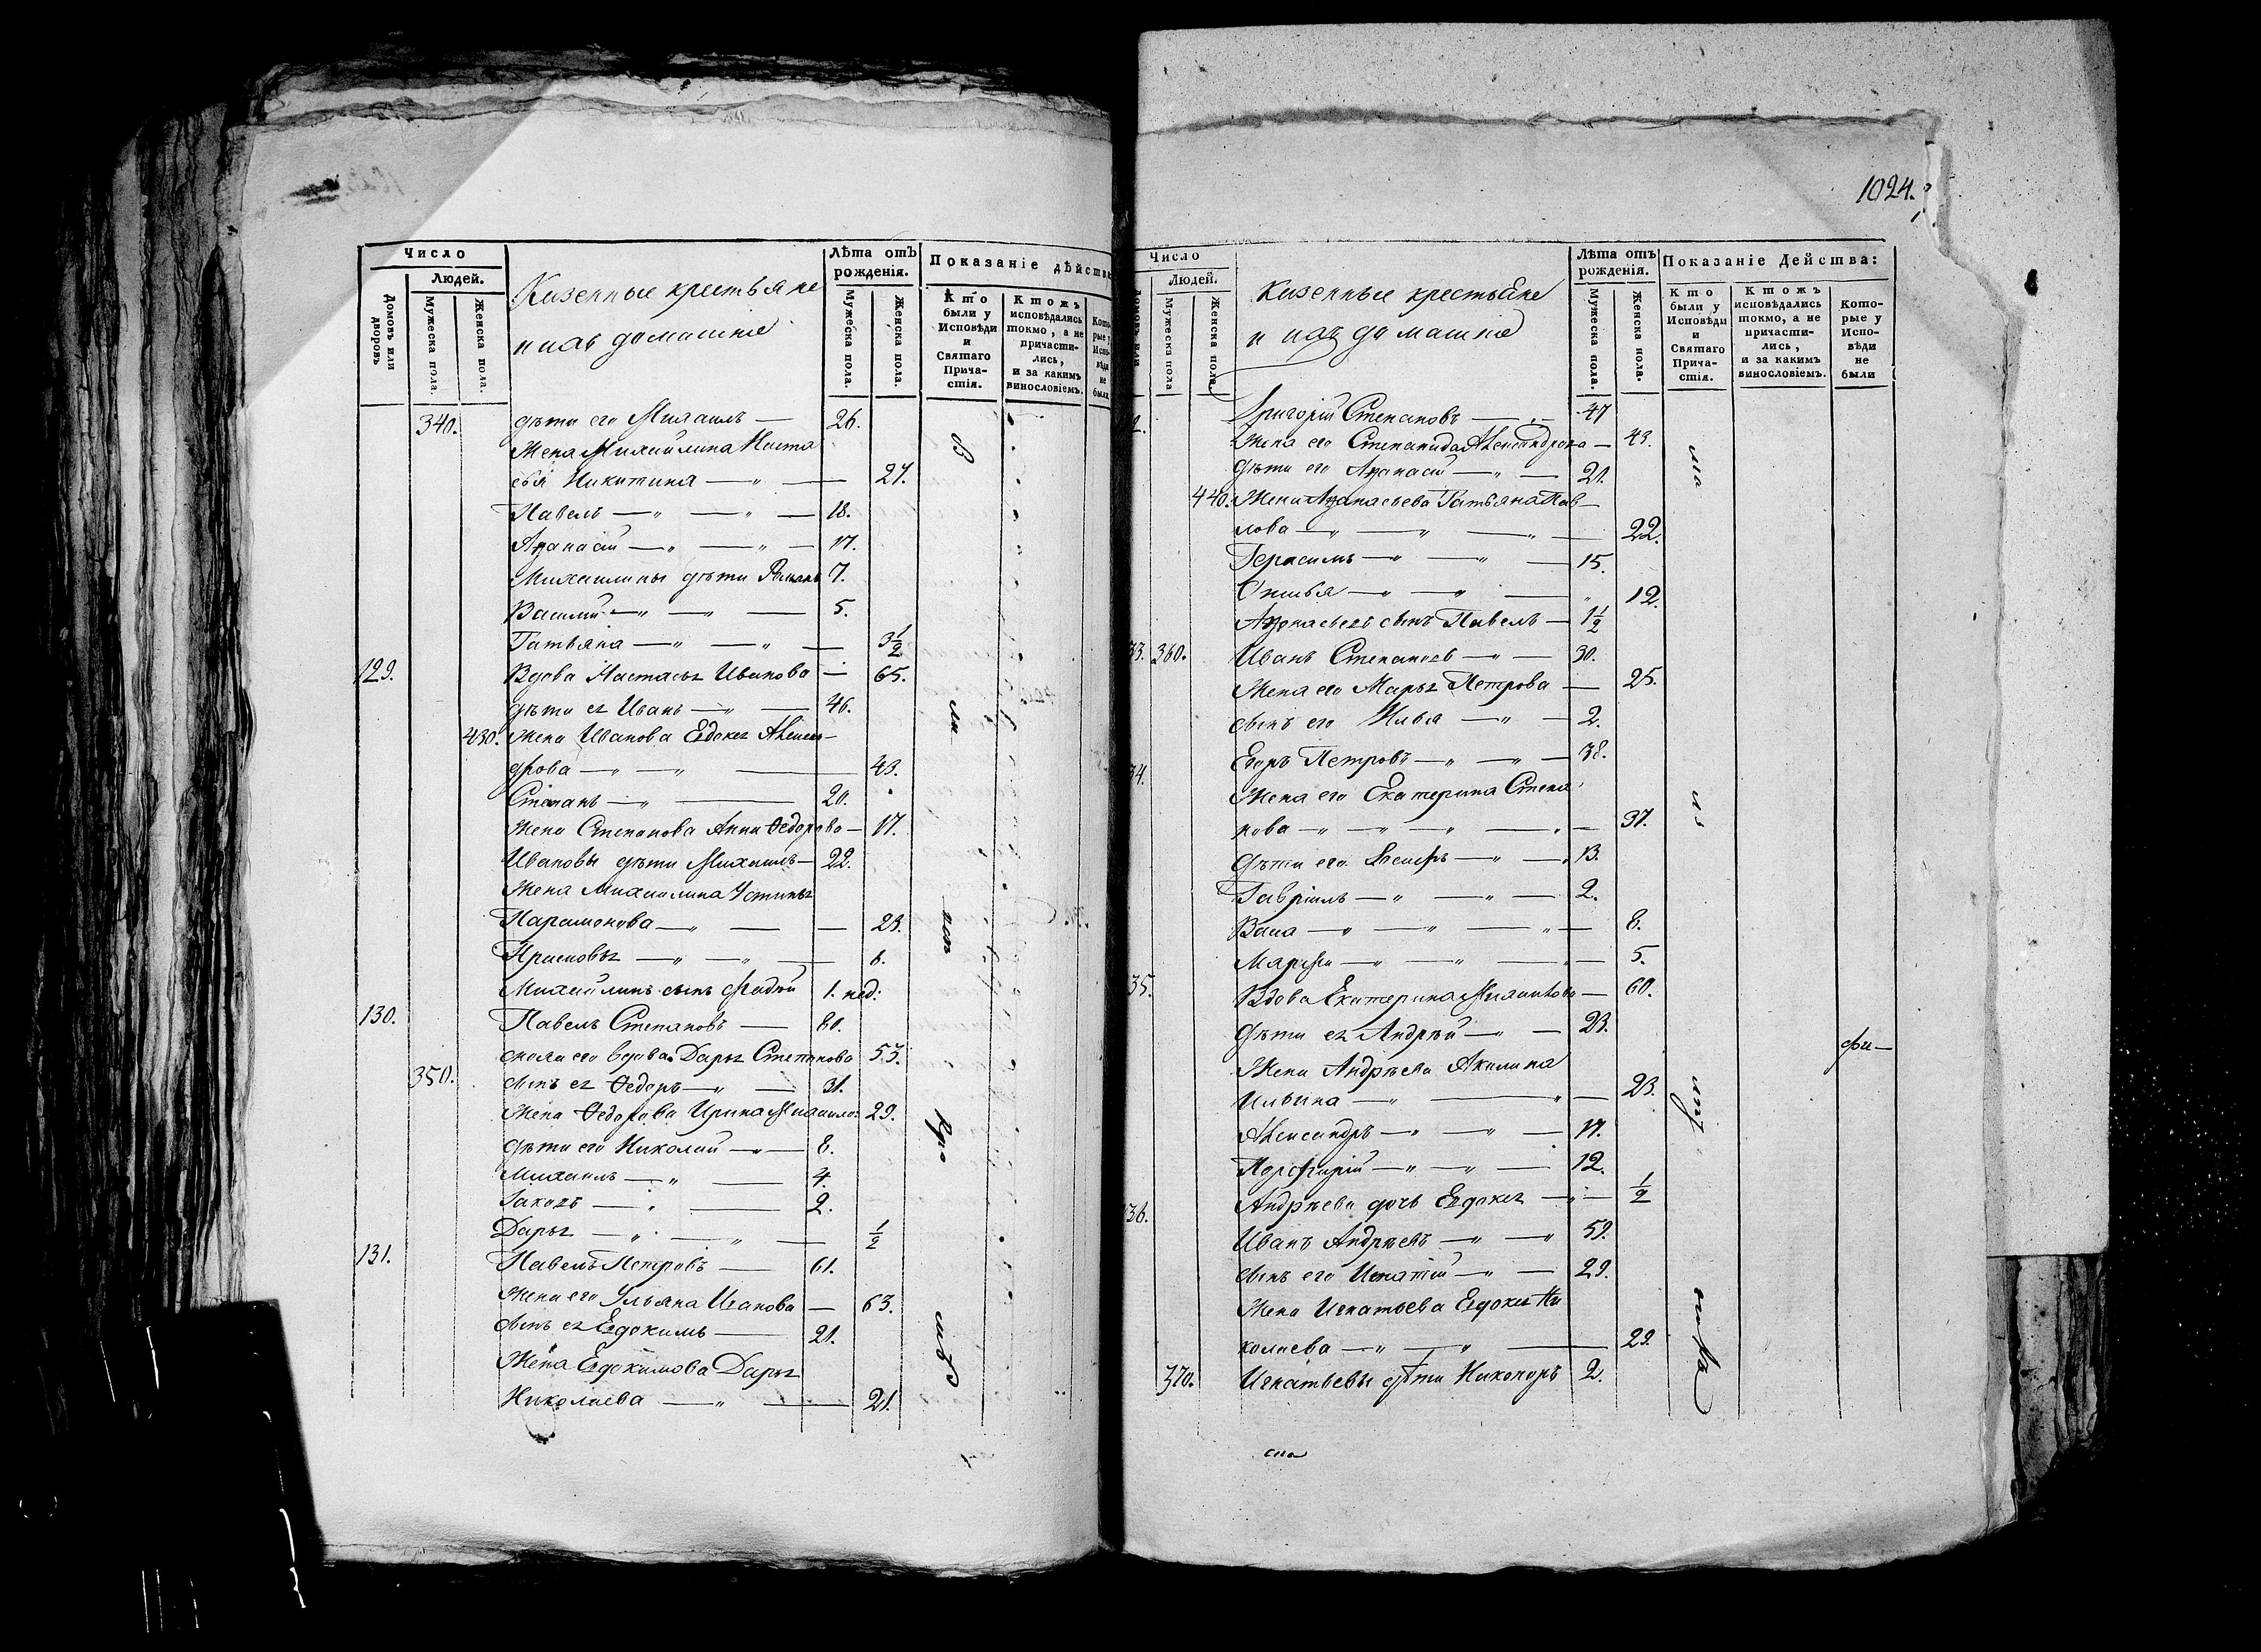 1024.
Число
Людей.
Домовъ или дворовъ
Мужеска пола.
Женска пола.
Казенные крестьяне
и ихъ домашніе
Лѣта отъ рожденія.
Мужеска пола.
Женска пола.
Показаніе дѣйства
Кто были у Исповѣди и Святаго Прича-стія.
Ктожъ исповѣдались токмо, а не причасти-лись, и за какимъ винословіемъ.
340. дѣти его Михаилъ — 26.
Жена Михайлина Наста
сья Никитина — „ — 27.
Павелъ — „ — „ — 18.
Афанасій — „ — „ — 17.
Михаилины дѣти Романъ 7.
Василій — „ — „ — 5.
Татьяна — „ — „ — 3 1/2
129. Вдова Настасья Иванова — 65.
дѣти ея Иванъ — „ — 46.
430. Жена Иванова Евдокея Алексан-
дрова — „ — „ — 43.
Степанъ — „ — 20.
Жена Степанова Анна Ѳедорова — 17.
Ивановы дѣти Михаилъ — 22.
Жена Михаилина Устинья
Парамонова — „ — 23.
— „ — „ — 6.
Михайлинъ сынъ 1. нед:
130. Павелъ Степановъ — 80.
сноха его вдова Дарья Степанова 53.
350. сынъ ея Ѳедоръ — „ — 31.
Жена Ѳедорова Ирина Михаило: 29.
дѣти его Николай — „ — 8.
Михаилъ — „ — 4.
Іаковъ — „ — 2.
Дарья — „ — „ — 1/2
131. Павелъ Петровъ — 61.
Жена его Ульяна Иванова — 63.
сынъ ея Евдокимъ — 21.
Жена Евдокимова Дарья
Николаева — „ — 21.
Число
Людей.
Мужеска пола
Женска пола.
Казенные крестьяне
и ихъ домашніе
Лѣта отъ рожденія.
Мужеска пола.
Женска пола.
Показаніе Дейсмва:
Кто были у Исповѣди и Святаго Прича-стія.
Ктожъ исповѣдались токмо, а не причасти-лись, и за какимъ винословіемъ.
Кото-рые у Испо-вѣди не были
Григорій Степановъ — „ — 47
Жена его Степанида Александрова — 43.
Дѣти его Афанасій — „ — 21.
440. Жена Афанасьева Татьяна Пав-
лова — „ — „ — „ — 22.
Герасимъ — „ — „ — 15.
— „ — „ — 12.
Афанасьевъ сынъ Павелъ — 1 1/2
33. 360. Иванъ Степановъ — „ — 30.
Жена его Марья Петрова — 25.
сынъ его Илья — „ — 2.
34. Егоръ Петровъ — „ — „ — 38.
Жена его Екатерина Степа
нова — „ — „ — „ — „ — 37.
Дѣти его — „ — 13.
Гавріилъ — „ — „ — 2.
— „ — „ — „ — 8.
Марфа — „ — „ — 5.
35. Вдова Екатерина — 60.
Дѣти ея Андрѣй — „ — 23.
Жена Андрѣева Акилина
Ильина — „ — „ — 23.
Александръ — „ — „ — 17.
Порфирій — „ — „ — 12.
Андрѣева дочь Евдокея — „ — 1/2
36. Иванъ Андрѣевъ — „ — „ 59.
сынъ его Игнатій — „ — 29.
Жена Игнатьева Евдокея Ни
колаева — „ — „ — 29.
370. Игнатьевы дѣти Никоноръ 2.